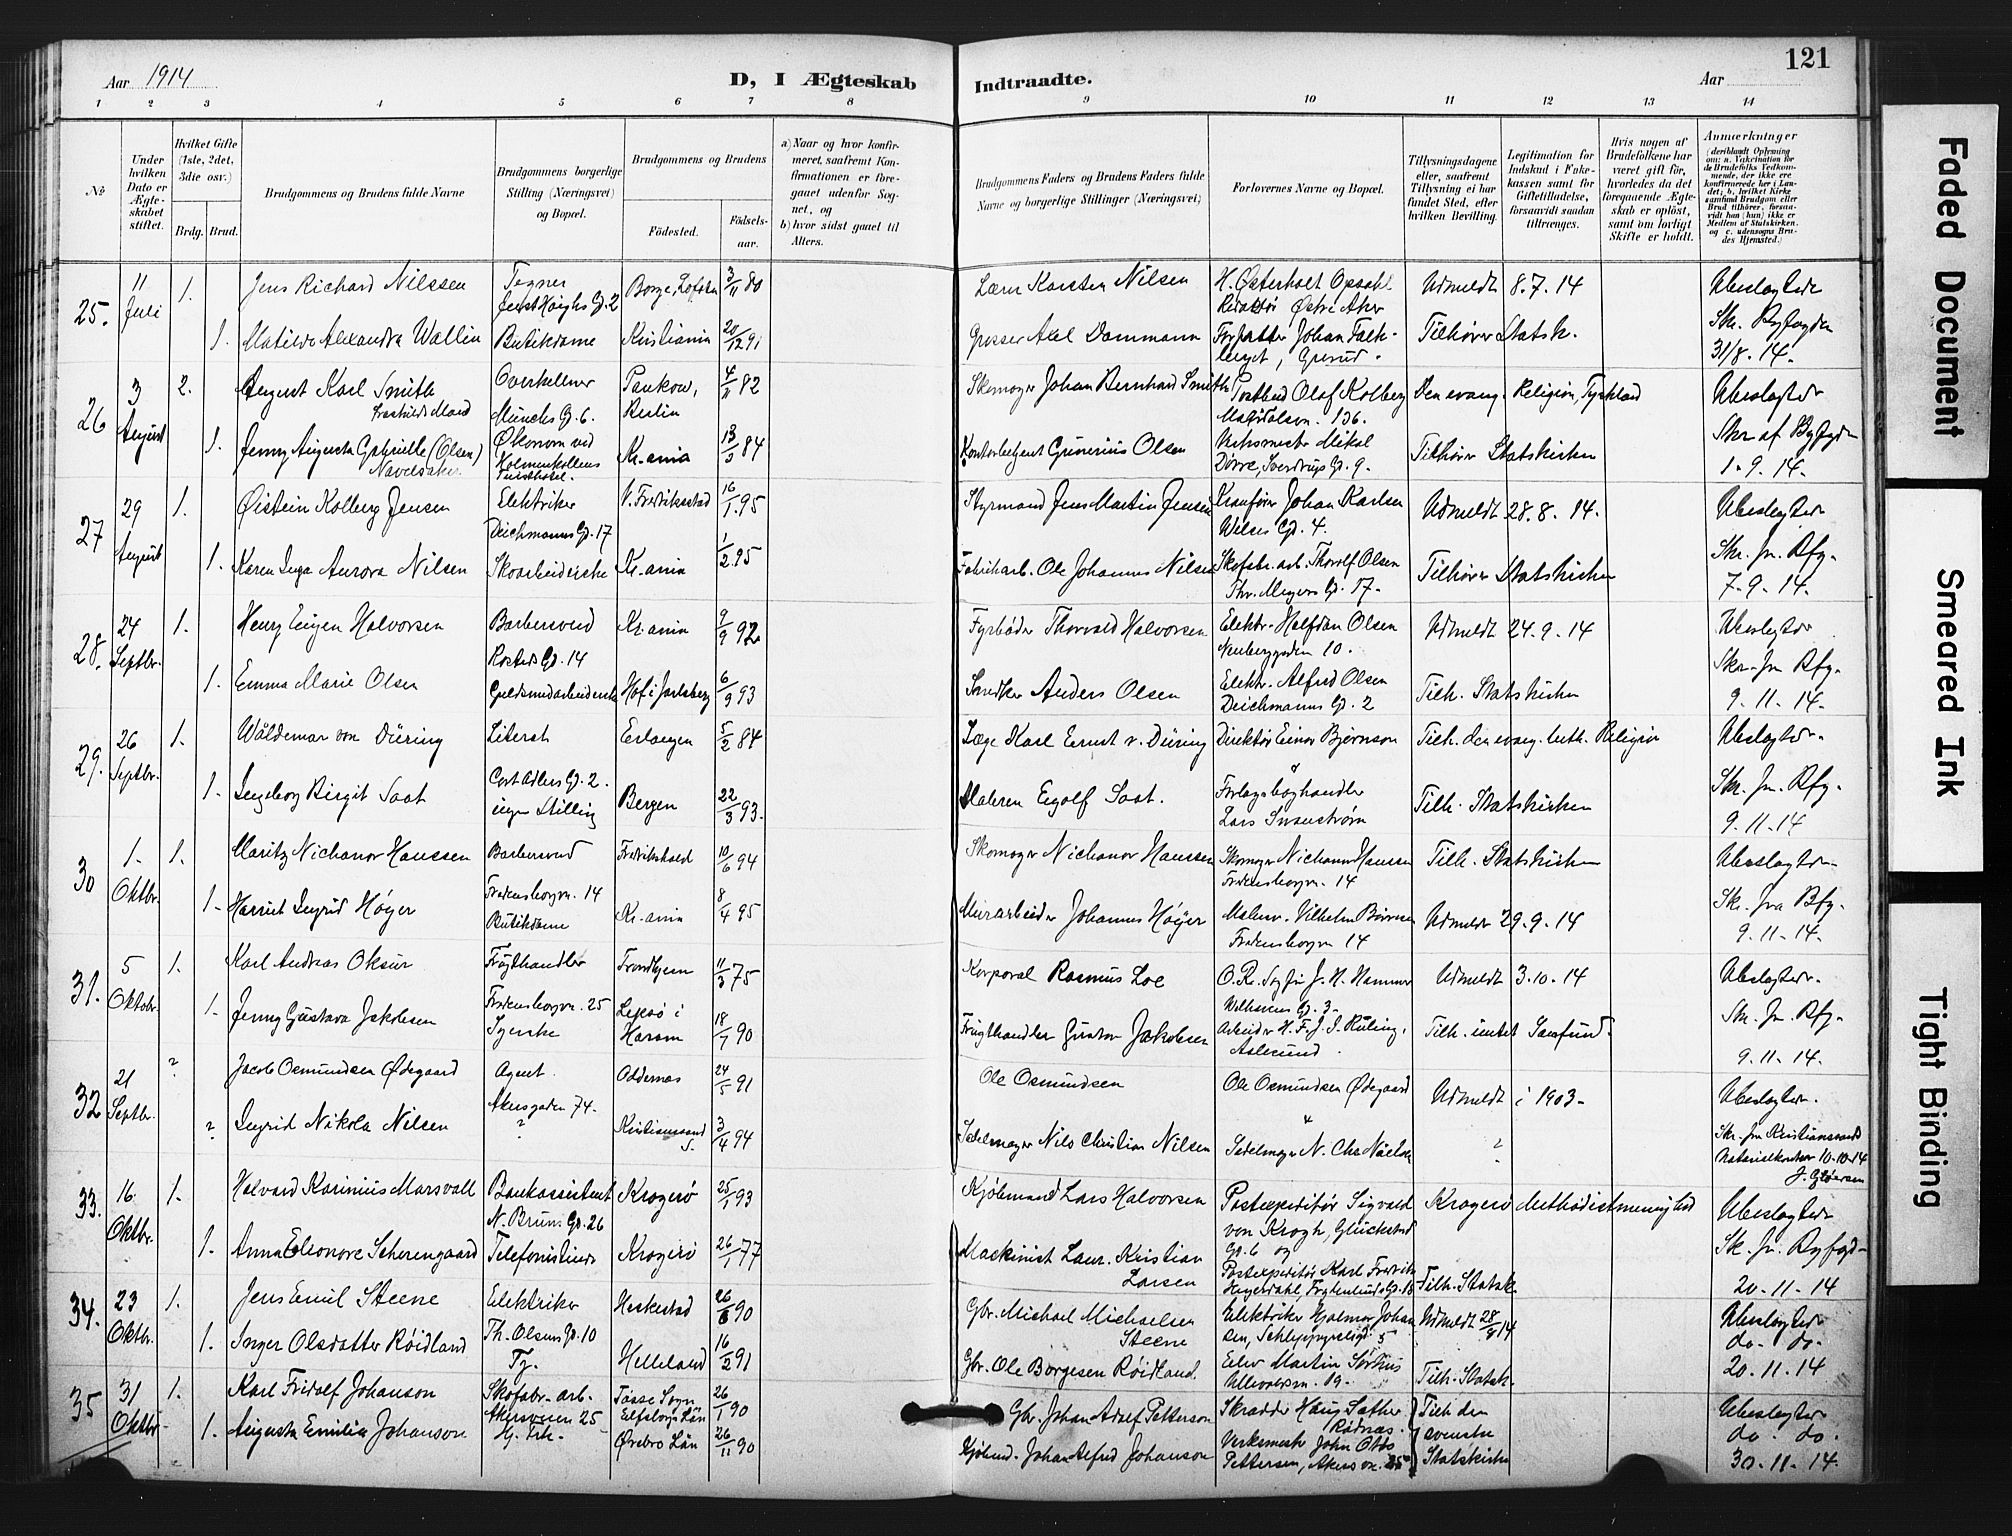 Aar 1914
D, I Ægteskab
Indtraadte.
Aar
121
1 2 3 4 5 6 7 8 9 10 11 12 13 14
No
Under hvilken Dato er Ægteskabet stiftet.
Hvilket Gifte (1ste, 2det, 3die osv.)
Brdg. Brud.
Brudgommens og Brudens fulde Navne
Brudgommens borgerlige Stilling (Næringsvei) og Bopæl.
Brudgommens og Brudens
Fødested.
Fødselsaar.
a) Naar og hvor konfirmeret, saafremt Konfirmationen er foregaaet udenfor Sognet, og
b) hvor sidst gaaet til Alters.
Brudgommens Faders og Brudens Faders fulde Navne og borgerlige Stillinger (Næringsvei)
Forlovernes Navne og Bopæl.
Tillysningsdagene eller, saafremt Tillysning ei har fundet Sted, efter hvilken Bevilling.
Legitimation for Indskud i Enkekassen samt for Giftetilladelse, forsaavidt saadan tiltrænges.
Hvis nogen af Brudefolkene har været gift før, hvorledes da det foregaaende Ægteskab er opløst, samt om lovligt Skifte er holdt.
Anmærkninger
25. 11 Juli 1. Jens Richard Nilssen Tegner Borge, Lofoten 3/11 80 Karsten Nilsen H. Østerholt Opsahl Udmeldt 8.7.14 Ubeslægtede
Redaktør Østre Aker
1. Matilde Alexandra Wallin Butikdame Kristiania 20/12 91 Grosser Axel Dammann Forfatter Johan Falkberget, Grorud. Tilhører Statsk. 31/8. 14.
26 3 August 2. August Karl Smith Overkellner Pankow, Berlin 4/11 82 Skomager Johan Bernhard Smith Postbud Olaf Kolberg Den evang. Religion, Tyskland Ubeslægtede
fraskildt Mand Munchs Gd. 6.
1. Jenny Augusta Gabrielle (Olsen) Økonom ved Holmenkollens Turisthotel. Kr.ania 13/3 84 Kontorbetjent Grunerius Olsen Verksmester Mikal Dørre, Sverdrups Gd. 9. Tilhører Statskirken 1.9.14.
27 29 August 1. Øistein Kolberg Jensen Elektriker V. Fredriksstad 16/1 95 Styrmand Jens Martin Jensen Kranfører Johan Karlsen Udmeldt 28.8.14. Ubeslægtede
Deichmanns Gd. 17 Welses Gd. 4.
1. Karen Inga Aurora Nilsen Skoarbeiderske Kr.ania 1/2 95 Fabrikarb. Ole Johannes Nilsen Skofabr.arb. Thorolf Olsen Tilhører Statskirken 7-9-14.
Thv. Meyers Gd. 17.
28. 24 Septbr. 1. Henry Eugen Halvorsen Barbersvend Kr.ania 9/9 92 Fyrbøder Thorvald Halvorsen Elektr. Halfdan Olsen Udmeldt 24.9.14 Ubeslægtede
Rosteds Gd. 14 Neuberggaden 10.
1. Emma Marie Olsen Guldsmedarbeiderske Hof i Jarlsberg 6/9 93 Snedker Anders Olsen Elektr. Alfred Olsen Deichmanns Gd. 2 Tilh. Statskirken 9-11-14.
29. 26 Septbr. 1. Waldemar von Düring Literat Erlangen 5/2 84 Læge Karl Ernst v. Düring Direktør Einar Bjørnson Tilh. den evang. luth. Religion Ubeslægtede
Cort Adlers Gd. 2.
1. Ingeborg Birgit Soot ingen Stilling Bergen 22/3 93. Maleren Eyolf Soot. Forlagsboghandler Lars Swanstrøm Tilh. Statskirken 9-11-14
30 1. Oktbr. 1. Moritz Nichanor Hanssen Barbersvend Fredrikshald 10/6 94 Skomager Nichanor Hanssen Skomager Nichanor Hanssen Tilh. Statskirken Ubeslægtede
Fredensborgvn. 14
1. Harriet Ingrid Høyer Butikdame Kr.ania 8/4 95 Murarbeider Johannes Høyer Vilhelm Børresen Udmeldt 29.9.14 Sk. fra Bfg.
Fredensborgvn 14 9-11-14.
31. 5 Oktobr. 1. Karl Andreas Oksur Frugthandler Trondhjem 11/3 75 Korporal Rasmus Loe O.R. Sagfør J. H. Hammer Udmeldt 3.10.14 Ubeslægtede
Fredensborgvn. 25
1. Jenny Gustava Jakobsen Syerske Lepsø i Haram 18/7 90 Frugthandler Gustav Jakobsen Arbeider H. F. J. S. Ruling, Aalesund. Tilh. intet Samfund. 9-11-14.
32 21 Septbr. ? Jacob Osmundsen Ødegaard Agent. Oddernes 24/5 91 Ole Osmundsen Ole Osmundsen Ødegaard Udmeldt i 1903. Ubeslægtede.
Akersgaden 74.
? Ingrid Nikola Nilsen ? Kristianssand S. 3/4 94 Sadelmager Nils Christian Nilsen Sadelmager N. Chr. Nielsen ? Skr. fra Kristianssands
Notarialkontor 10-10-14
33. 16 Oktbr. 1. Halvard Karinius Marsvall Bankassistent Kragerø 25/1 93 Kjøbmand Lars Halvorsen Postexpeditør Sigvald von Krogh, Glückstad Gd. 6 og Kragerø Methodistmenighed Ubeslægtede
N. Bruns Gd. 26
1. Anna Eleonore Scherengaard Telefonistinde Kragerø 26/1 77 Maskinist Laur. Kristian Larsen Postexpeditør Karl Fredrik Heyerdahl, Tilh. Statsk. 20-11-14
34. 23 Oktbr. 1. Jens Emil Steene Elektriker Heskestad 26/6 90 Gbr. Michael Michaelsen Steene Elektriker Hjalmar Johansen, Udmeldt 28/8 14 Ubeslægtede
Th. Olsens Gd. 10
1. Inger Olsdatter Røidland Tj. Helleland 16/2 91 Gbr. Ole Børgesen Røidland. Elev Martin Ullevaalsvn. 19. Tilh. Statsk. do. do.
20.11.14
35 31 Oktbr. 1. Karl Fridolf Johanson Skofabr. arb. Tösse Sogn Elfsborgs Län 26/1 90 Gbr. Johan Adolf Petterson Skrædder Haug Sæther Tilh. den svenske Statskirke Ubeslægtede
Akersveien 25
1. Augusta Emilia Johanson Örebro Län 26/11 90 Johan Alfred Johanson Verksmester John Otto Pettersen, Akersvn. 25 do. do.
30-11-14.
Faded Document
Smeared Ink
Tight Binding